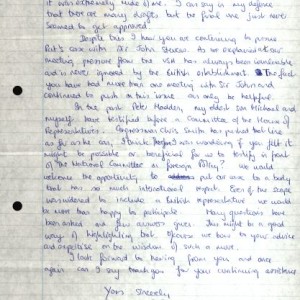 it was extremely rude of me. I can say in my defence
that there are many drafts but the final one just never
seemed to get approved.
Despite this I know you are continuing to pursue
Pat's case with Sir John Stevens. As we explained at our
meeting pressure from the USA has always been invaluable
and is never ignored by the British establishment. The fact
you have had more than one meeting with Sir John and
continued to push in this way can only be helpful.
In the past Peter Madden, my eldest son Michael and
myself have testified before a Committee of the House of
Representatives. Congressman Chris Smith has pushed but
as far as he can, I think. I was wondering if you felt it
might be possible or beneficial for us to testify in front
of the National Committee on Foreign Policy? We would
welcome the opportunity to put our case to a body
that has so much international respect. Even if the scope
was widened to include a British representative we would
be more than happy to participate. Many questions have
been asked and few answers given. This might be a good
way of highlighting that, of course we bow to your advice
and expertise on the wisdom of such a move.
I look forward to hearing from you and once
again can I say thank you for your continuing assistance
Yours Sincerely